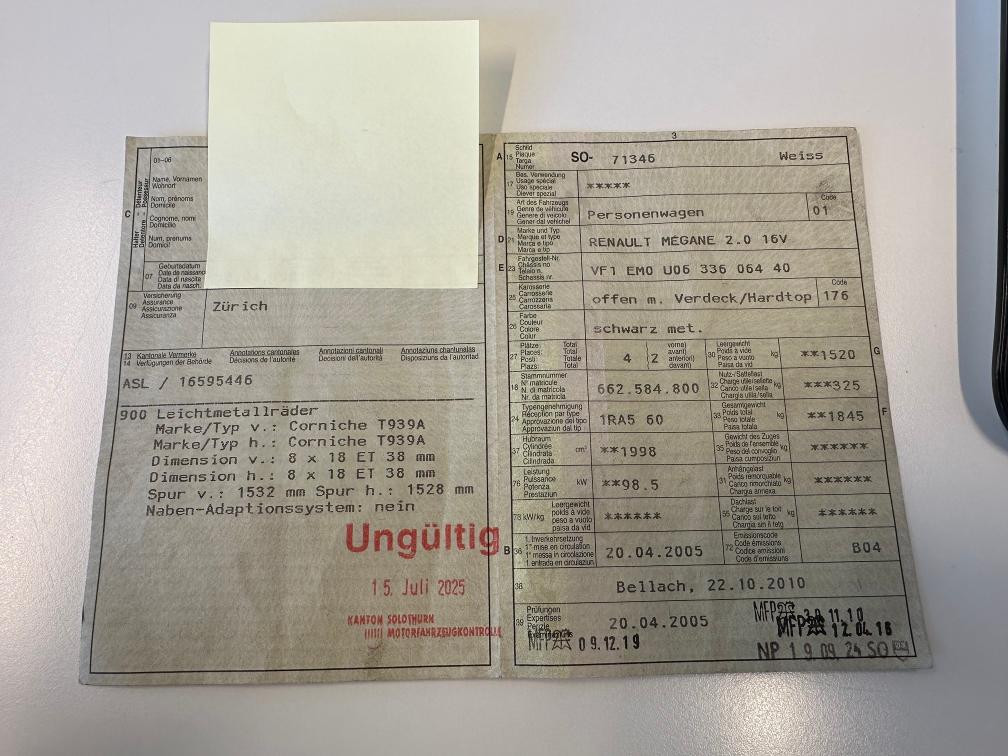 01-06
Name, Vornamen
Wohnort
Nom, prénoms
Domicile
Cognome, nomi
Domicilio
Num, prenums
Domicil
C
Halter
Détenteur
Possessur
07
Geburtsdatum
Data di nascita
Data da nasch.
09
Versicherung
Assurance
Assicurazione
Assicuranza
Zürich
13 Kantonale Vermerke
14 Verfügungen der Behörde
Annotations cantonales
Décisions de l'autorité
Annotazioni cantonali
Decisioni dell'autorità
Annotaziuns chantunalas
Disposiziuns da l'autoritad
ASL / 16595446
900 Leichtmetallräder
Marke/Typ v.: Corniche T939A
Marke/Typ h.: Corniche T939A
Dimension v.: 8 x 18 ET 38 mm
Dimension h.: 8 x 18 ET 38 mm
Spur v.: 1532 mm Spur h.: 1528 mm
Naben-Adaptionssystem: nein
Ungültig
15. Juli 2025
KANTON SOLOTHURN
MOTORFAHRZEUGKONTROLLE
3
A 15 Schild
Plaque
Targa
Numer
SO- 71346 Weiss
17 Bes. Verwendung
Usage spécial
Uso speciale
Diever spezial
*****
19 Art des Fahrzeugs
Genre de véhicule
Genere di veicolo
Gener dal vehichel
Personenwagen
Code
01
D 21 Marke und Typ
Marque et type
Marca e tipo
Marca e tip
RENAULT MEGANE 2.0 16V
E 23 Fahrgestell-Nr.
Châssis no
Telaio n.
Schassis nr.
VF1 EM0 U06 336 064 40
25 Karosserie
Carrosserie
Carrozzeria
Carossaria
offen m. Verdeck/Hardtop
Code
176
26 Farbe
Couleur
Colore
Colur
schwarz met.
27 Plätze Total
Places: Total
Posti Totale
Plazs: Total
4 (2
vorne)
avant)
anteriori)
davant)
30 Leergewicht
Poids à vide
Peso a vuoto
Paisa da vid
kg
**1520
G
18 Stammnummer
N° matricule
N. di matricola
Nr. da matricla
662.584.800
32 Nutz-/Sattellast
Charge utile/sellette
Carico utile/sella
Chargia utila/sella
kg
***325
24 Typengenehmigung
Réception par type
Approvazione del tipo
Approvaziun dal tip
1RA5 60
33 Gesamtgewicht
Poids total
Peso totale
Paisa totala
kg
**1845
F
37 Hubraum
Cylindrée
Cilindrata
Cilindrada
cm³
**1998
35 Gewicht des Zuges
Poids de l'ensemble
Peso del convoglio
Paisa cumposiziun
kg
******
76 Leistung
Puissance
Potenza
Prestaziun
kW
**98.5
31 Anhängelast
Poids remorquable
Carico rimorchiato
Chargia annexa
kg
******
78 kW/kg
Leergewicht
poids à vide
peso a vuoto
paisa da vid
******
55 Dachlast
Charge sur le toit
Carico sul tetto
Chargia sin il tetg
kg
******
B 36 1. Inverkehrsetzung
1re mise en circulation
1a messa in circolazione
1. entrada en circulaziun
20.04.2005
72 Emissionscode
Code émissions
Codice emissioni
Code d'emissiuns
B04
38
Bellach, 22.10.2010
39 Prüfungen
Expertises
Perizie
20.04.2005
MFP 09.12.19
MFP 11.10
MFP 12.04.16
NP 19.09.24 SO